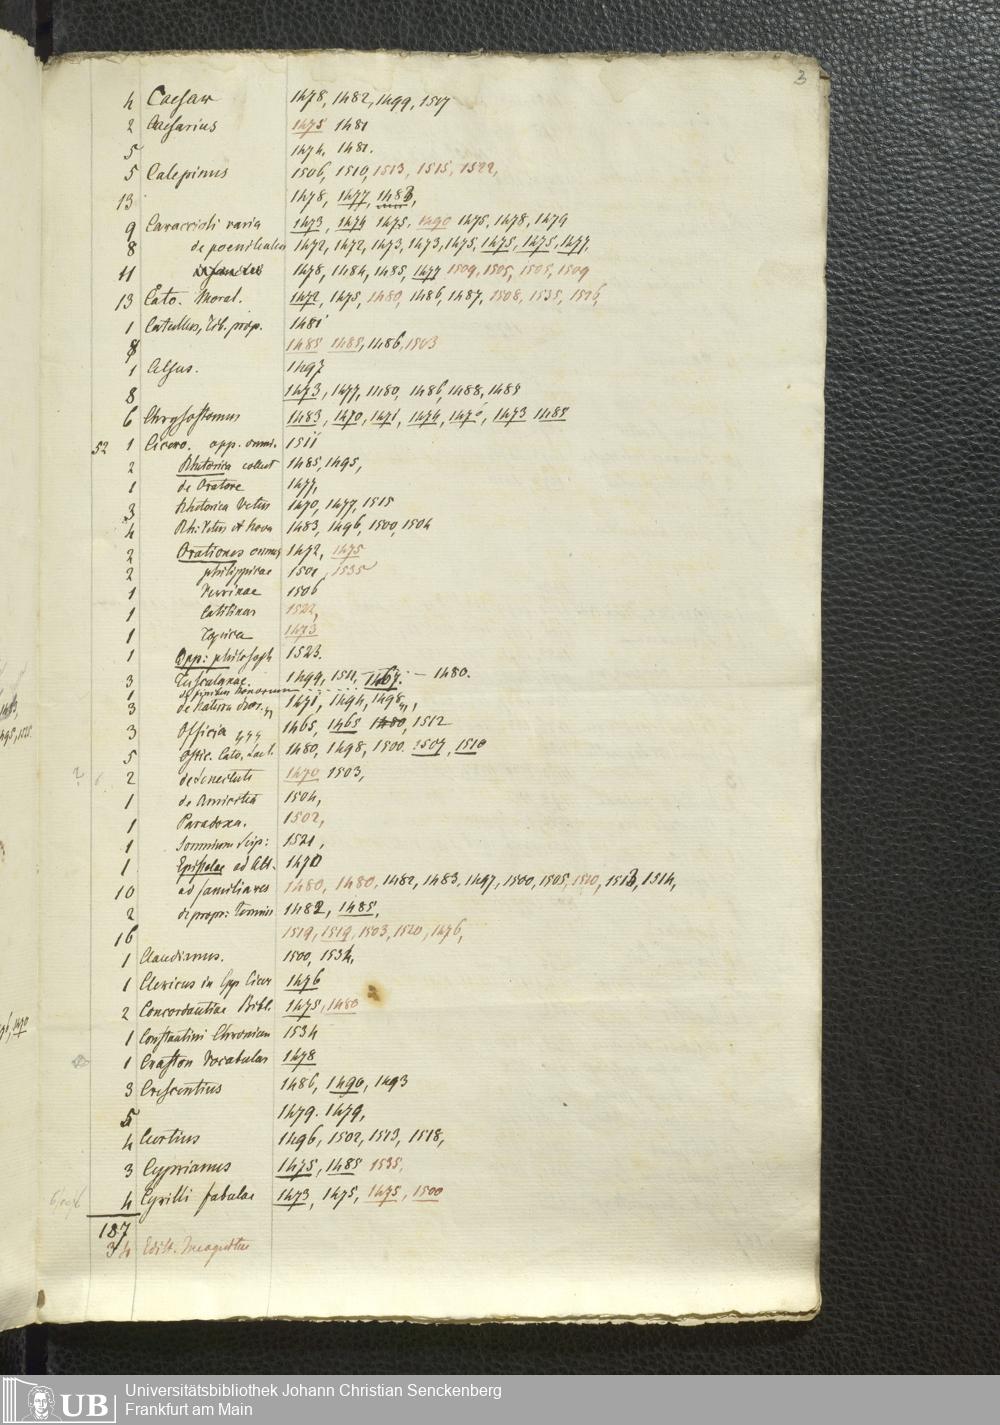 3
4 Caesar 1478, 1482, 1499, 1517
2 Caesarius 1475 1481
5 1474. 1481.
5 Calepinus 1506, 1510, 1513, 1515, 1522,
13 1478, 1477, 1483,
9 Caraccioli varia 1473, 1474 1475, 1490 1475, 1478, 1479
8 de poenitentia 1472, 1472, 1473, 1473, 1475, 1475, 1475, 1477.
11 1478, 1484, 1485, 1477 1509, 1505, 1505, 1509
13 Cato. Moral. 1472, 1475, 1480, 1486, 1487, 1508, 1535, 1516,
1 Catullus, Tib. prop. 1481
8 1485 1485, 1486, 1503
1 Celsus. 1497
8 1473, 1477, 1480, 1486, 1488, 1489
6 Chrysostomus 1483, 1470, 1471, 1476, 1470, 1473 1485
52 1 Cicero. opp. omn. 1511
2 Rhetorica collect 1485, 1495,
1 de Oratore 1477,
3 Rhetorica Vetus 1470, 1477, 1515
4 Rh: Vetus et Nova 1483, 1496, 1500, 1504
2 Orationes omnes 1472, 1475
2 philippicae 1501, 1535
1 Verrinae 1506
1 Catilinar 1522,
1 Topica 1473
1 Opp: philosoph 1523.
3 Tusculanae. 1499, 1511, 1467. – 1480.
1 de finibus bonorum
3 de Natura deor. 1471, 1494, 1498,
3 Officia 1465, 1465 1480, 1512
5 Offic. Cato, Lael. 1480, 1498, 1500. 1507, 1510
2 de Senectute 1470 1503,
1 de Amicitia 1504,
1 Paradoxa. 1502,
1 Somnium Scip: 1521,
1 Epistolae ad Att. 1470
10 ad familiares 1480, 1480, 1482, 1483, 1497, 1500, 1505, 1510, 1513, 1514,
2 de propr: Terminis 1482, 1485,
16 1519, 1519, 1503, 1520, 1476,
1 Claudianus. 1500, 1534,
1 Clericus in Opp Cicer 1476
2 Concordantiae Bibl. 1475, 1480
1 Constantini Chronicon 1534
1 Craston Vocabular 1478
3 Crescentius 1486, 1490, 1493
5 1479. 1479,
4 Curtius 1496, 1502, 1513, 1518,
3 Cyprianus 1475, 1485 1535,
4 Cyrilli fabulae 1473, 1475, 1475, 1500
187
34 Edit. Incognitae
UB
Universitätsbibliothek Johann Christian Senckenberg
Frankfurt am Main